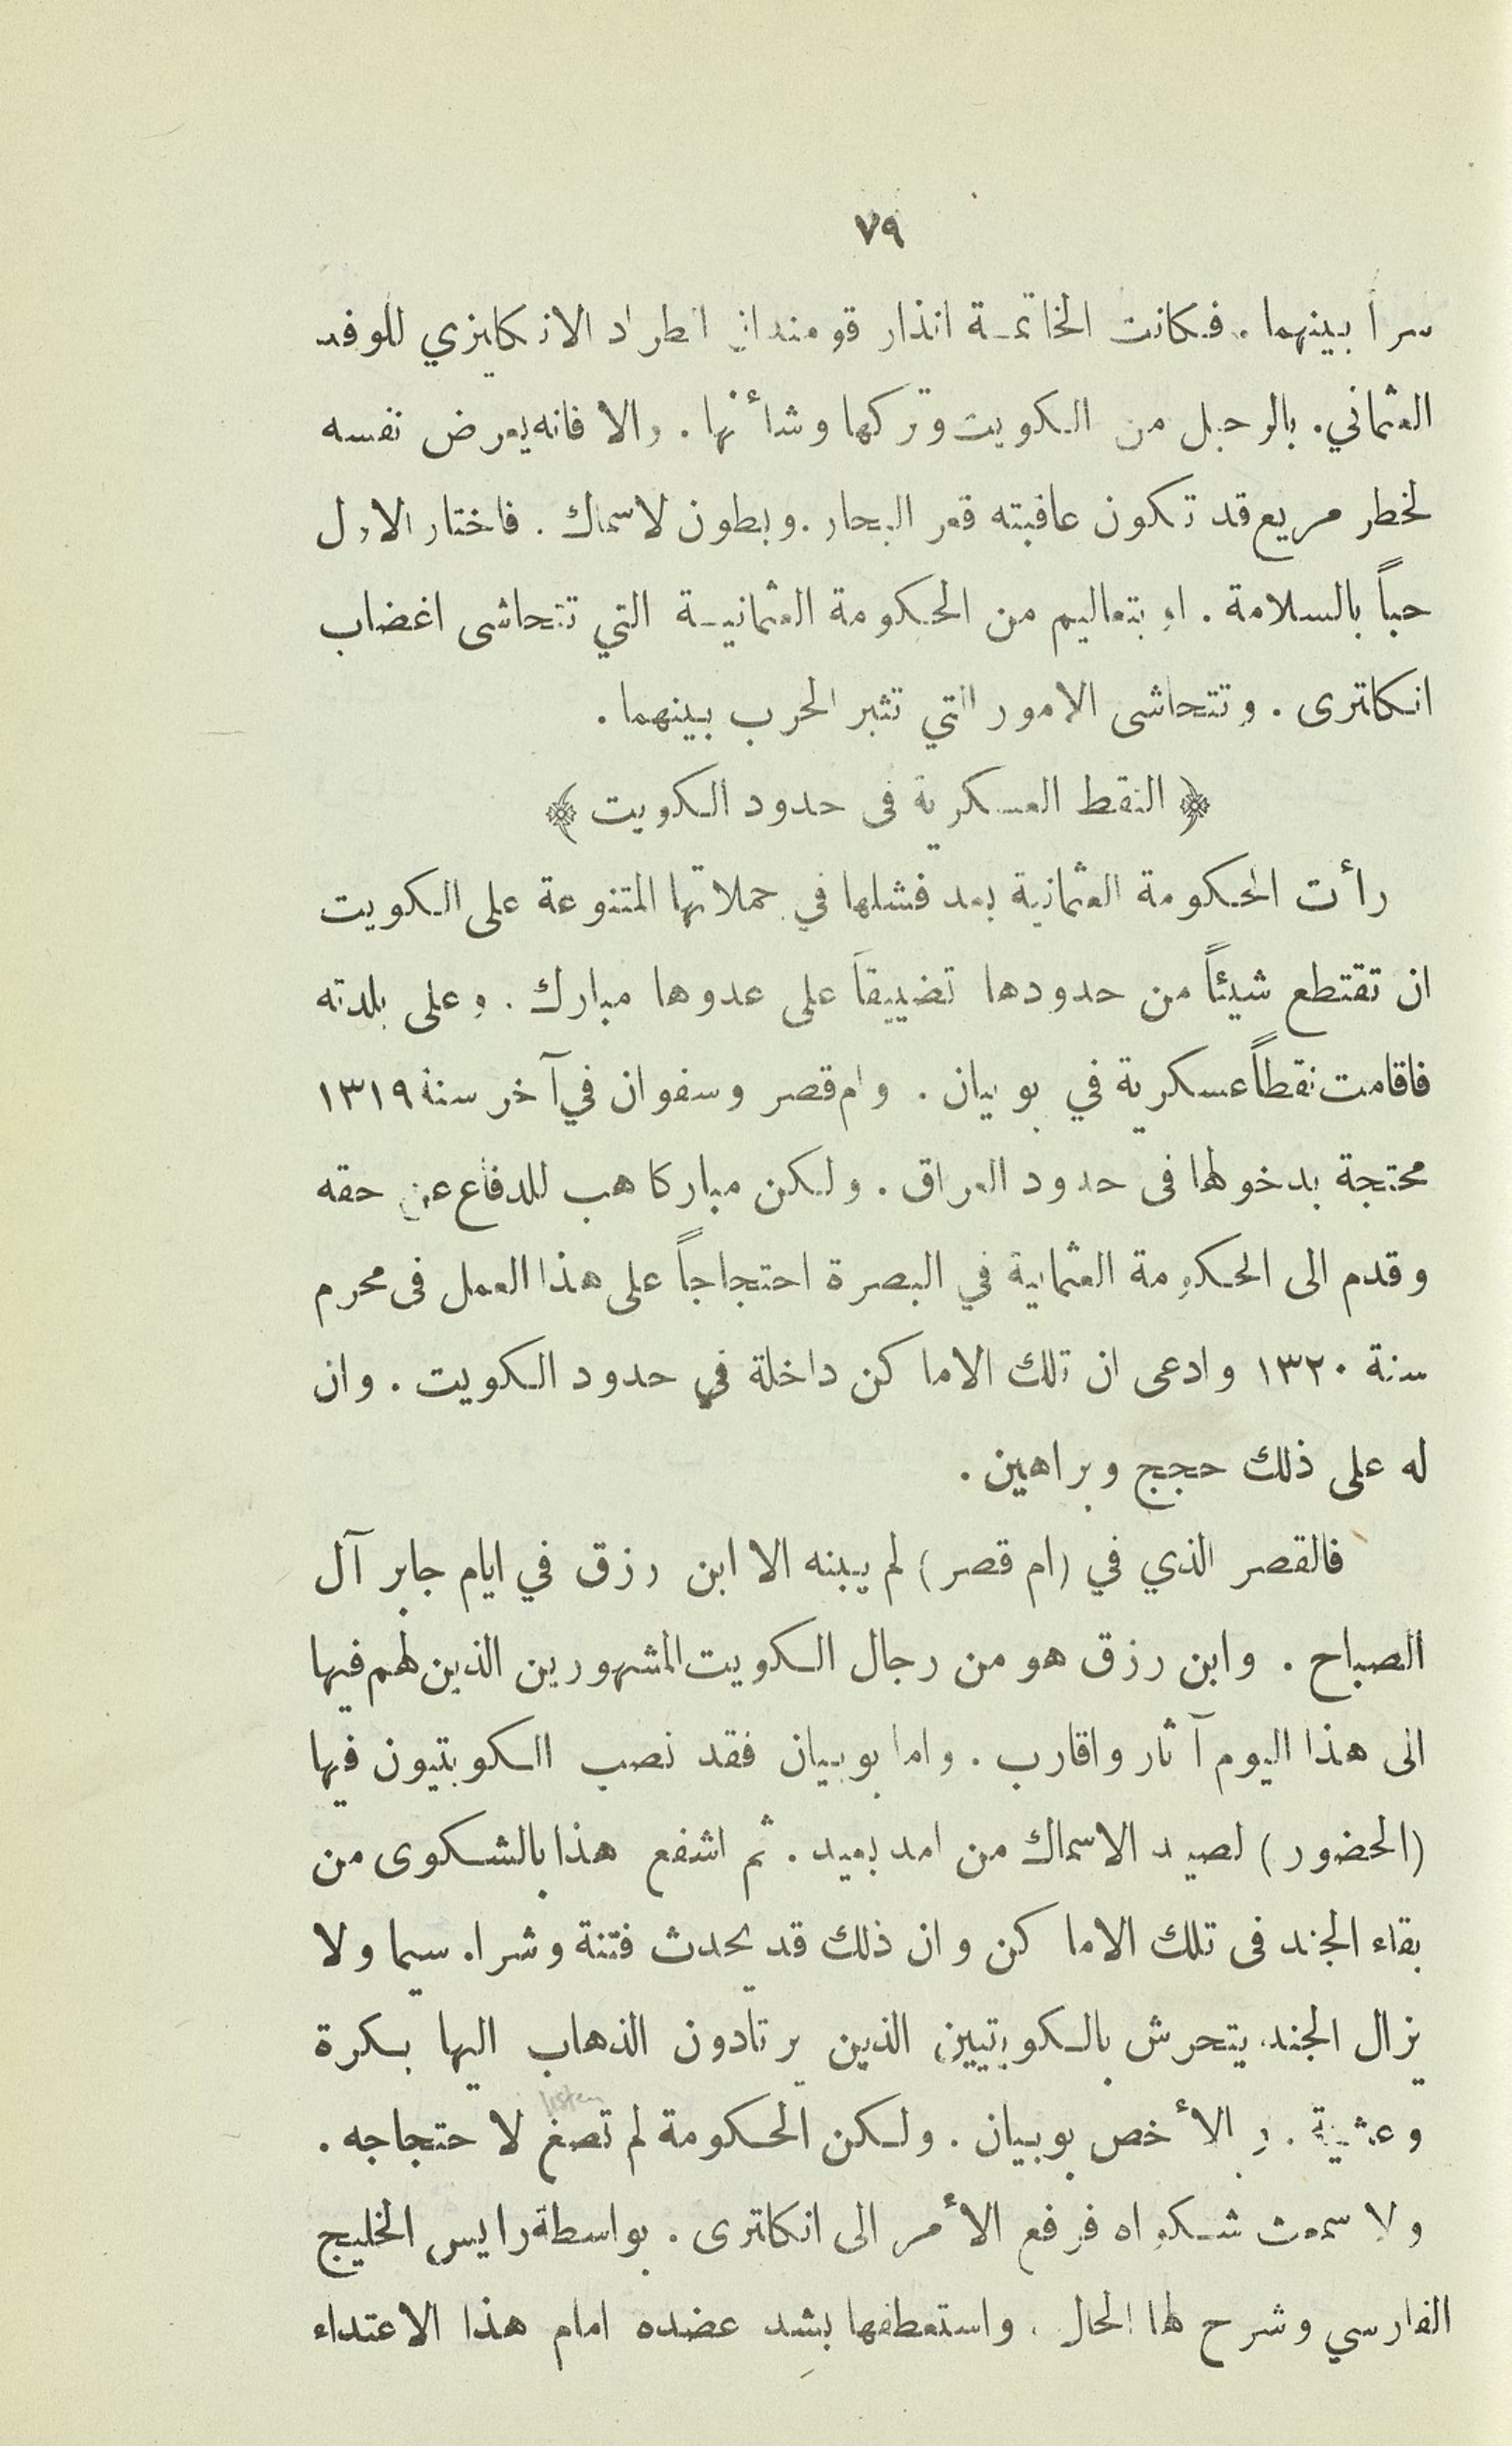 ٧٩
سراً بينهما. فكانت الخاتمة انذار قومندان الطراد الانكليزي للوفد
العثماني. بالرحيل من الكويت وتركها وشأنها. والا فانه يعرض نفسه
لخطر مريع قد تكون عاقبته قعر البحار. وبطون لاسماك. فاختار الاول
حباً بالسلامة. او بتعاليم من الحكومة العثمانية التي تتحاشى اغضاب
انكلترى. وتتحاشى الامور التي تثير الحرب بينهما.
﴿ النقط العسكرية فى حدود الكويت ﴾
رأت الحكومة العثمانية بعد فشلها في حملاتها المتنوعة على الكويت
ان تقتطع شيئاً من حدودها تضييقاً على عدوها مبارك. وعلى بلدته
فاقامت نقطاً عسكرية في بوبيان. وام قصر وسفوان في آخر سنة ١٣١٩
محتجة بدخولها فى حدود العراق. ولكن مباركا هب للدفاع عن حقه
وقدم الى الحكومة العثمانية في البصرة احتجاجاً على هذا العمل فى محرم
سنة ١٣٢٠ وادعى ان تلك الاماكن داخلة في حدود الكويت. وان
له على ذلك حجج وبراهين.
فالقصر الذي في (ام قصر) لم يبنه الا ابن رزق في ايام جابر آل
الصباح. وابن رزق هو من رجال الكويت المشهورين الذين لهم فيها
الى هذا اليوم آثار واقارب. واما بوبيان فقد نصب الكويتيون فيها
(الحضور) لصيد الاسماك من امد بعيد. ثم اشفع هذا بالشكوى من
بقاء الجند فى تلك الاماكن وان ذلك قد يحدث فتنة وشرا. سيما ولا
يزال الجند يتحرش بالكويتيين الذين يرتادون الذهاب اليها بكرة
listen
وعشية. وبالأخص بوبيان. ولكن الحكومة لم تصغ لاحتجاجه.
ولا سمعت شكواه فرفع الأمر الى انكلترى. بواسطة رايس الخليج
الفارسي وشرح لها الحال. واستعطفها بشد عضده امام هذا الاعتداء